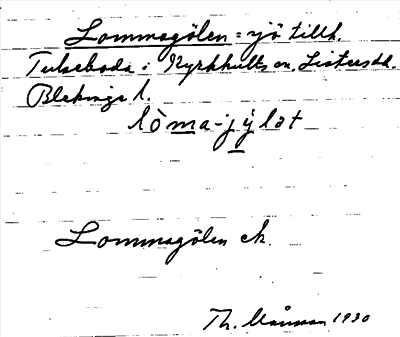 Lommagölen = sjö tillh.
Tulseboda i Kyrkhults sn. Listers hd.
Blekinge l.
lòma-jyl̀ət
Lommagölen ek.
Th. Månsson 1930